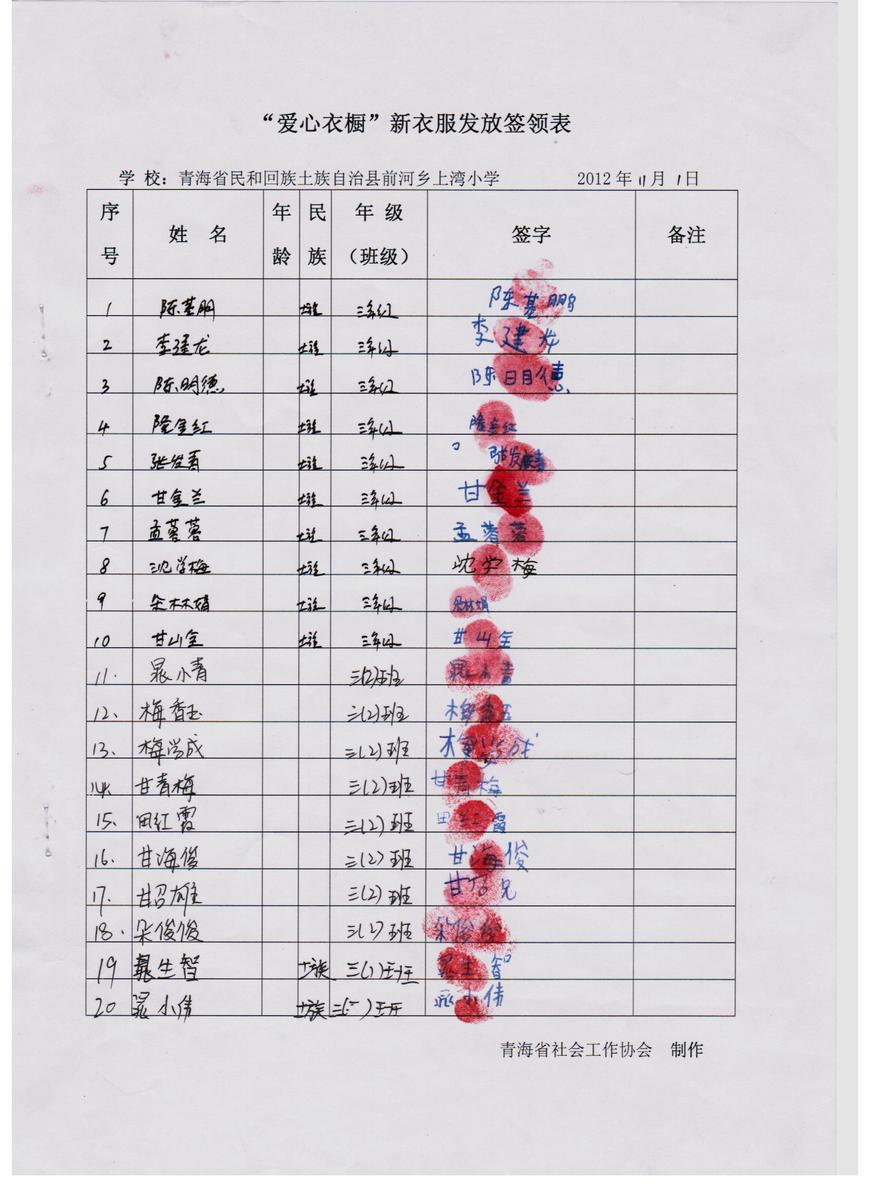 “爱心衣橱”新衣服发放签领表
学 校：青海省民和回族土族自治县前河乡上湾小学 2012年11月1日
序号 姓 名 年龄 民族 年 级（班级） 签字 备注
1 陈基鹏 土族 三年级 陈基鹏
2 李建龙 土族 三年级 李建龙
3 陈明德 土族 三年级 陈明德
4 隆金红 土族 三年级 隆金红
5 张发青 土族 三年级 张发青
6 甘金兰 土族 三年级 甘金兰
7 孟蓉蓉 土族 三年级 孟蓉蓉
8 沈学梅 土族 三年级 沈学梅
9 朵林娟 土族 三年级 朵林娟
10 甘山金 土族 三年级 甘山金
11. 晁小青 三(2)班 晁小青
12、 梅香玉 三(2)班 梅香玉
13、 梅学成 三(2)班 梅学成
14. 甘青梅 三(2)班 甘青梅
15. 田红霞 三(2)班 田红霞
16. 甘海俊 三(2)班 甘海俊
17. 甘招雄 三(2)班
18. 朵俊俊 三(2)班 朵俊俊
19 晁生智 土族 三(1)班 晁生智
20 晁小伟 土族 晁小伟
青海省社会工作协会 制作